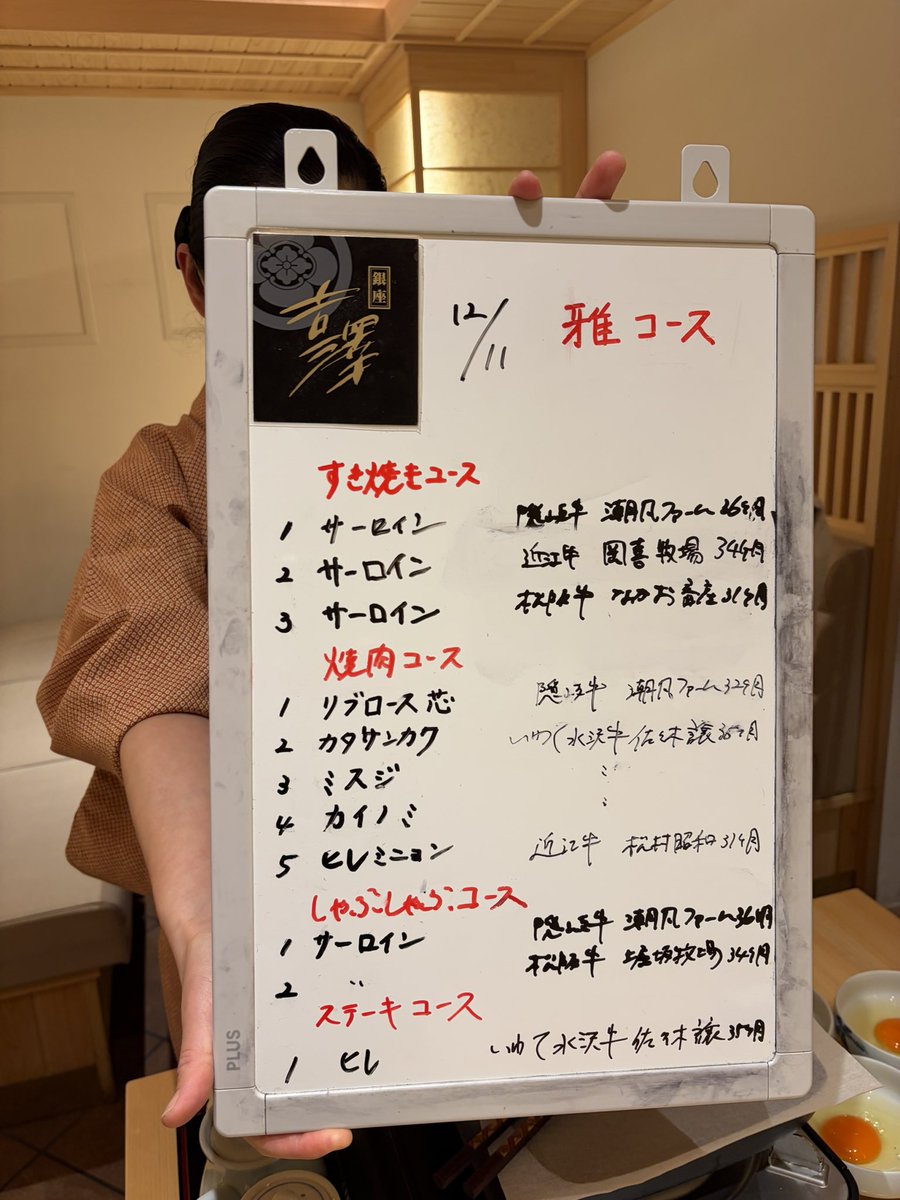 銀座
吉澤
12/11 雅コース
すき焼きコース
1 サーロイン 隠岐牛 潮風ファーム 36ヶ月
2 サーロイン 近江牛 岡喜牧場 34ヶ月
3 サーロイン 松阪牛 なかお畜産 31ヶ月
焼肉コース
1 リブロース芯 隠岐牛 潮風ファーム 32ヶ月
2 カタサンカク いわて水沢牛 佐々木譲
3 ミスジ 〃
4 カイノミ 〃
5 ヒレミニョン 近江牛 松村昭和 31ヶ月
しゃぶしゃぶコース
1 サーロイン 隠岐牛 潮風ファーム 36ヶ月
2 〃 松阪牛 34ヶ月
ステーキコース
1 ヒレ いわて水沢牛 佐々木譲
PLUS